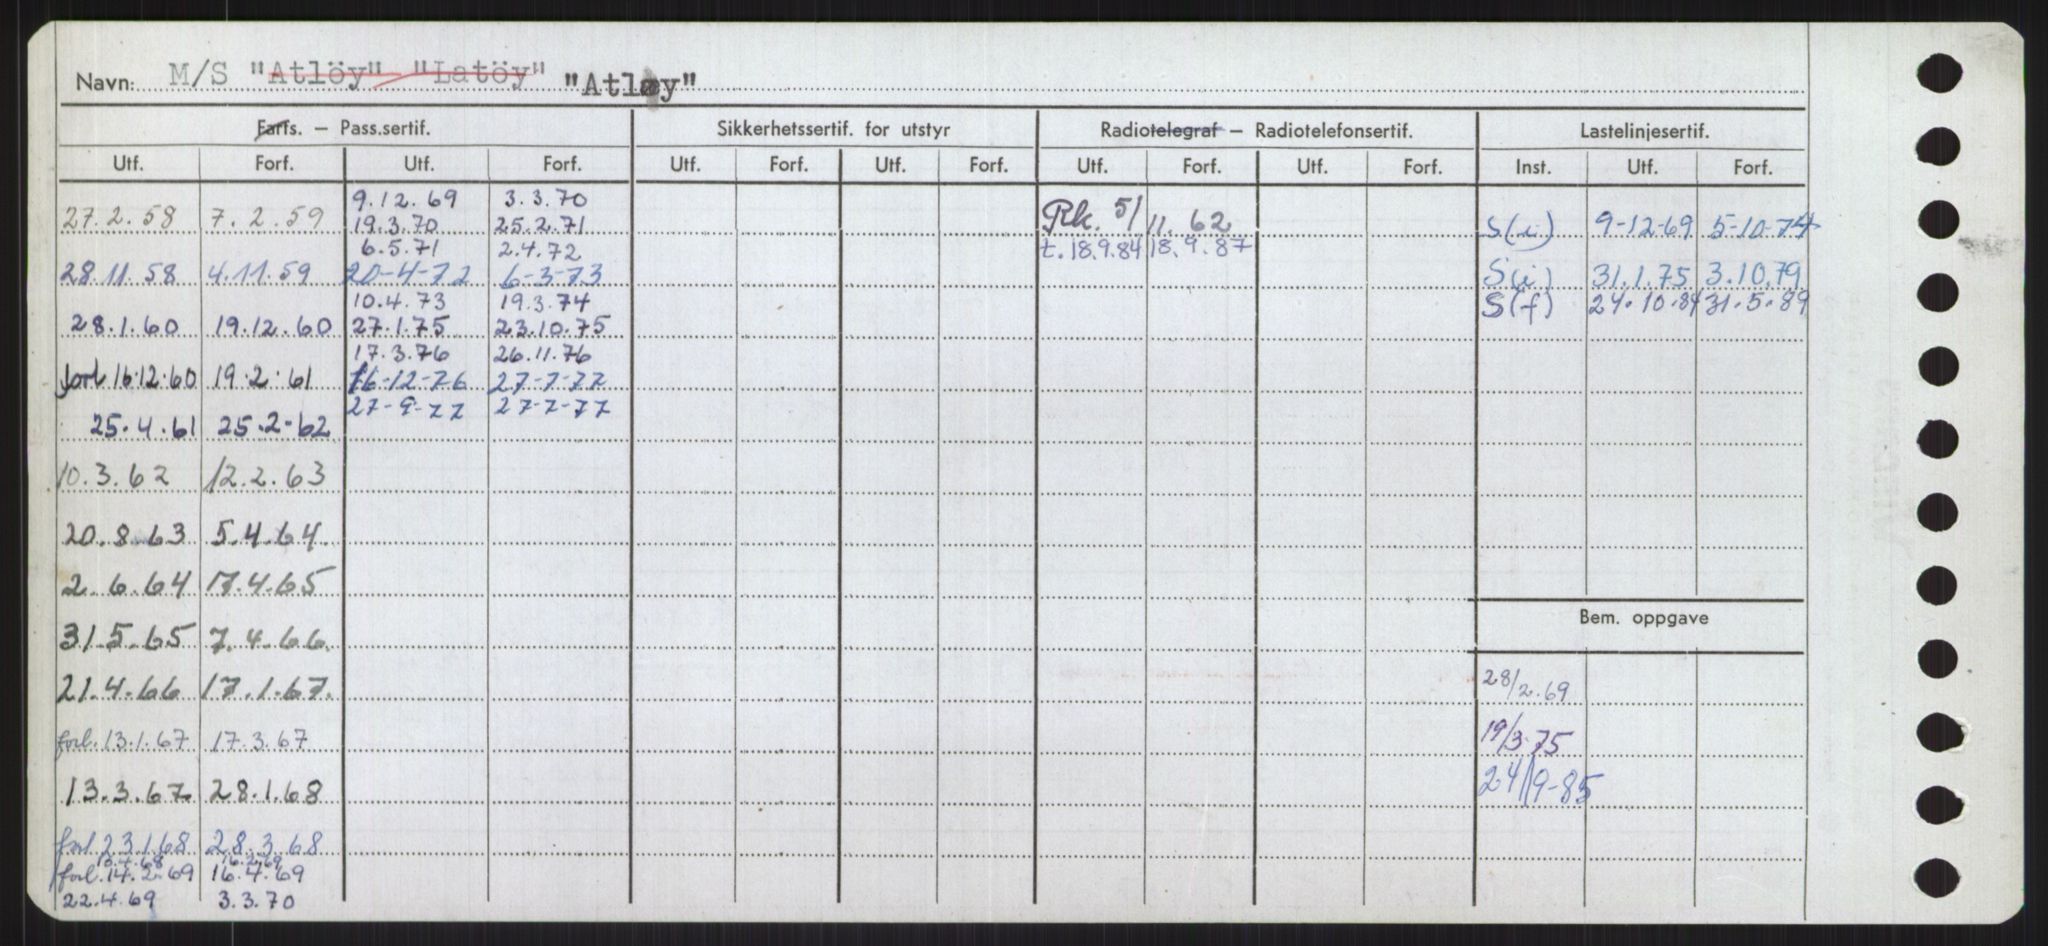 Navn: M/S "Atlöy" "Latöy" "Atløy"
Farts. — Pass.sertif. Sikkerhetssertif. for utstyr Radiotelegraf — Radiotelefonsertif. Lastelinjesertif.
Utf. Forf. Utf. Forf. Utf. Forf. Utf. Forf. Utf. Forf. Utf. Forf. Inst. Utf. Forf.
9.12.69 3.3.70
27.2.58 7.2.59 19.3.70 25.2.71 Rk. 5/11.62 S(i) 9-12-69 5-10-74
6.5.71 2.4.72 t.18.9.84 18.9.87
28.11.58 4.11.59 20-4-72 6-3-73 S(i) 31.1.75 3.10.79
10.4.73 19.3.74 S(f) 24.10.84 31.5.89
28.1.60 19.12.60 27.1.75 23.10.75
17.3.76 26.11.76
forl 16.12.60 19.2.61 16-12-76 27-7-77
27-9-77 27-7-77
25.4.61 25.2.62
10.3.62 12.2.63
20.8.63 5.4.64
2.6.64 17.4.65
Bem. oppgave
31.5.65 7.4.66.
21.4.66 17.1.67. 28/2.69
forl. 13.1.67 17.3.67 19/3-75
13.3.67 28.1.68 24/9-85
forl 23.1.68 28.3.68
10.4.68 16.2.69
forl. 14.2.69 16.4.69
22.4.69 3.3.70